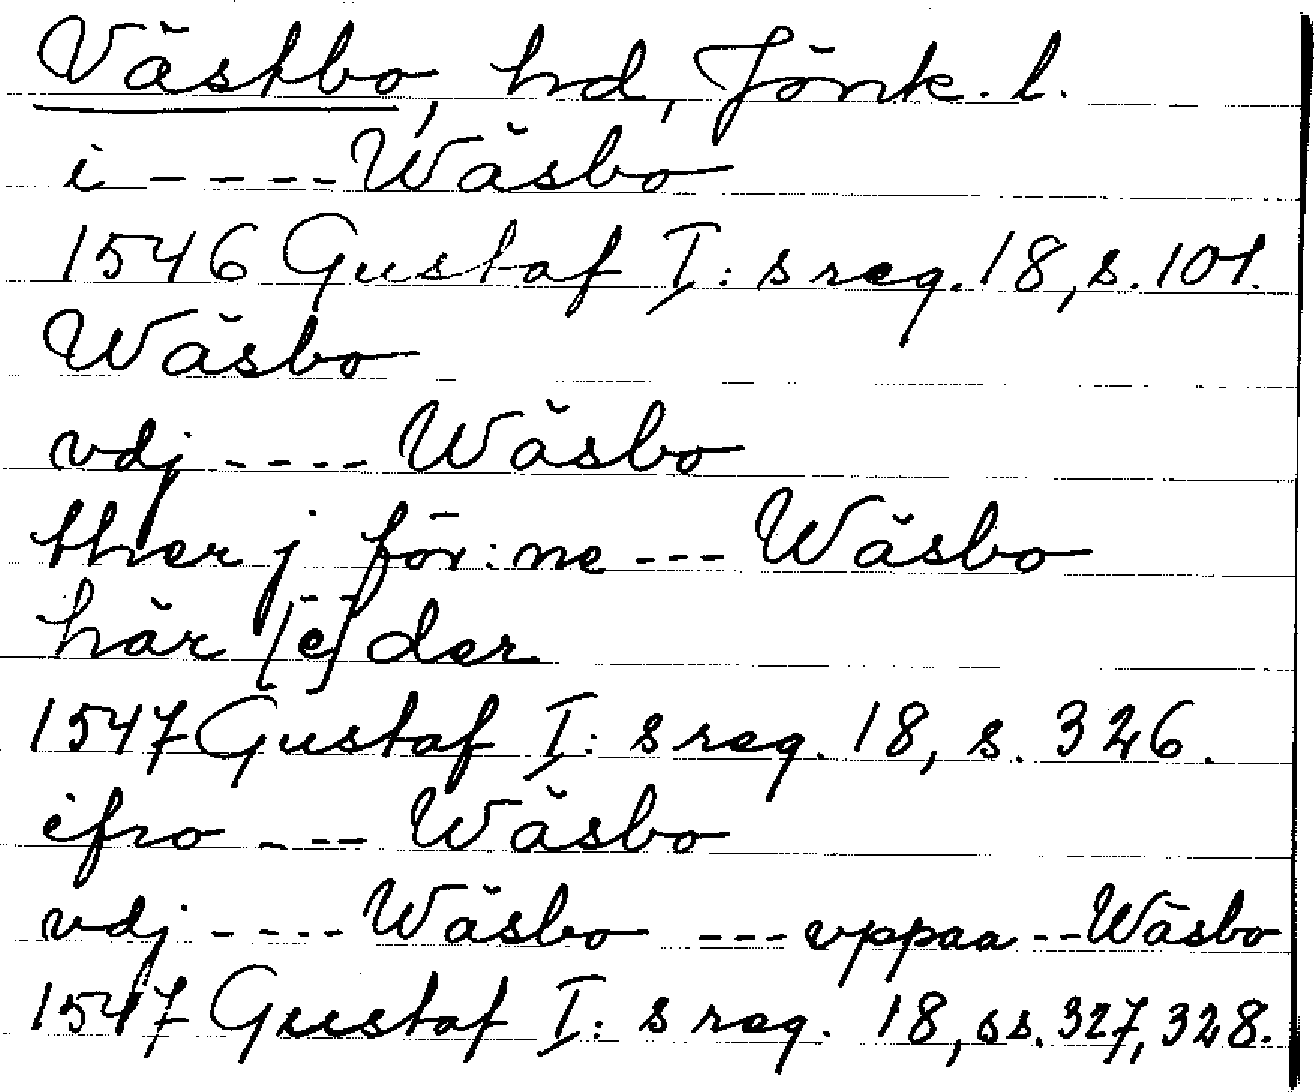 Västbo, hd, Jönk. l.
i ---- Wäsbo
1546 Gustaf I:s reg. 18, s. 101.
Wäsbo
vdj ---- Wäsbo
ther j för:ne --- Wäsbo
här [e] der
1547 Gustaf I:s reg. 18, s. 326.
ifro ---- Wäsbo
vdj ---- Wäsbo --- vppaa -- Wäsbo
1547 Gustaf I:s reg. 18, ss. 327, 328.